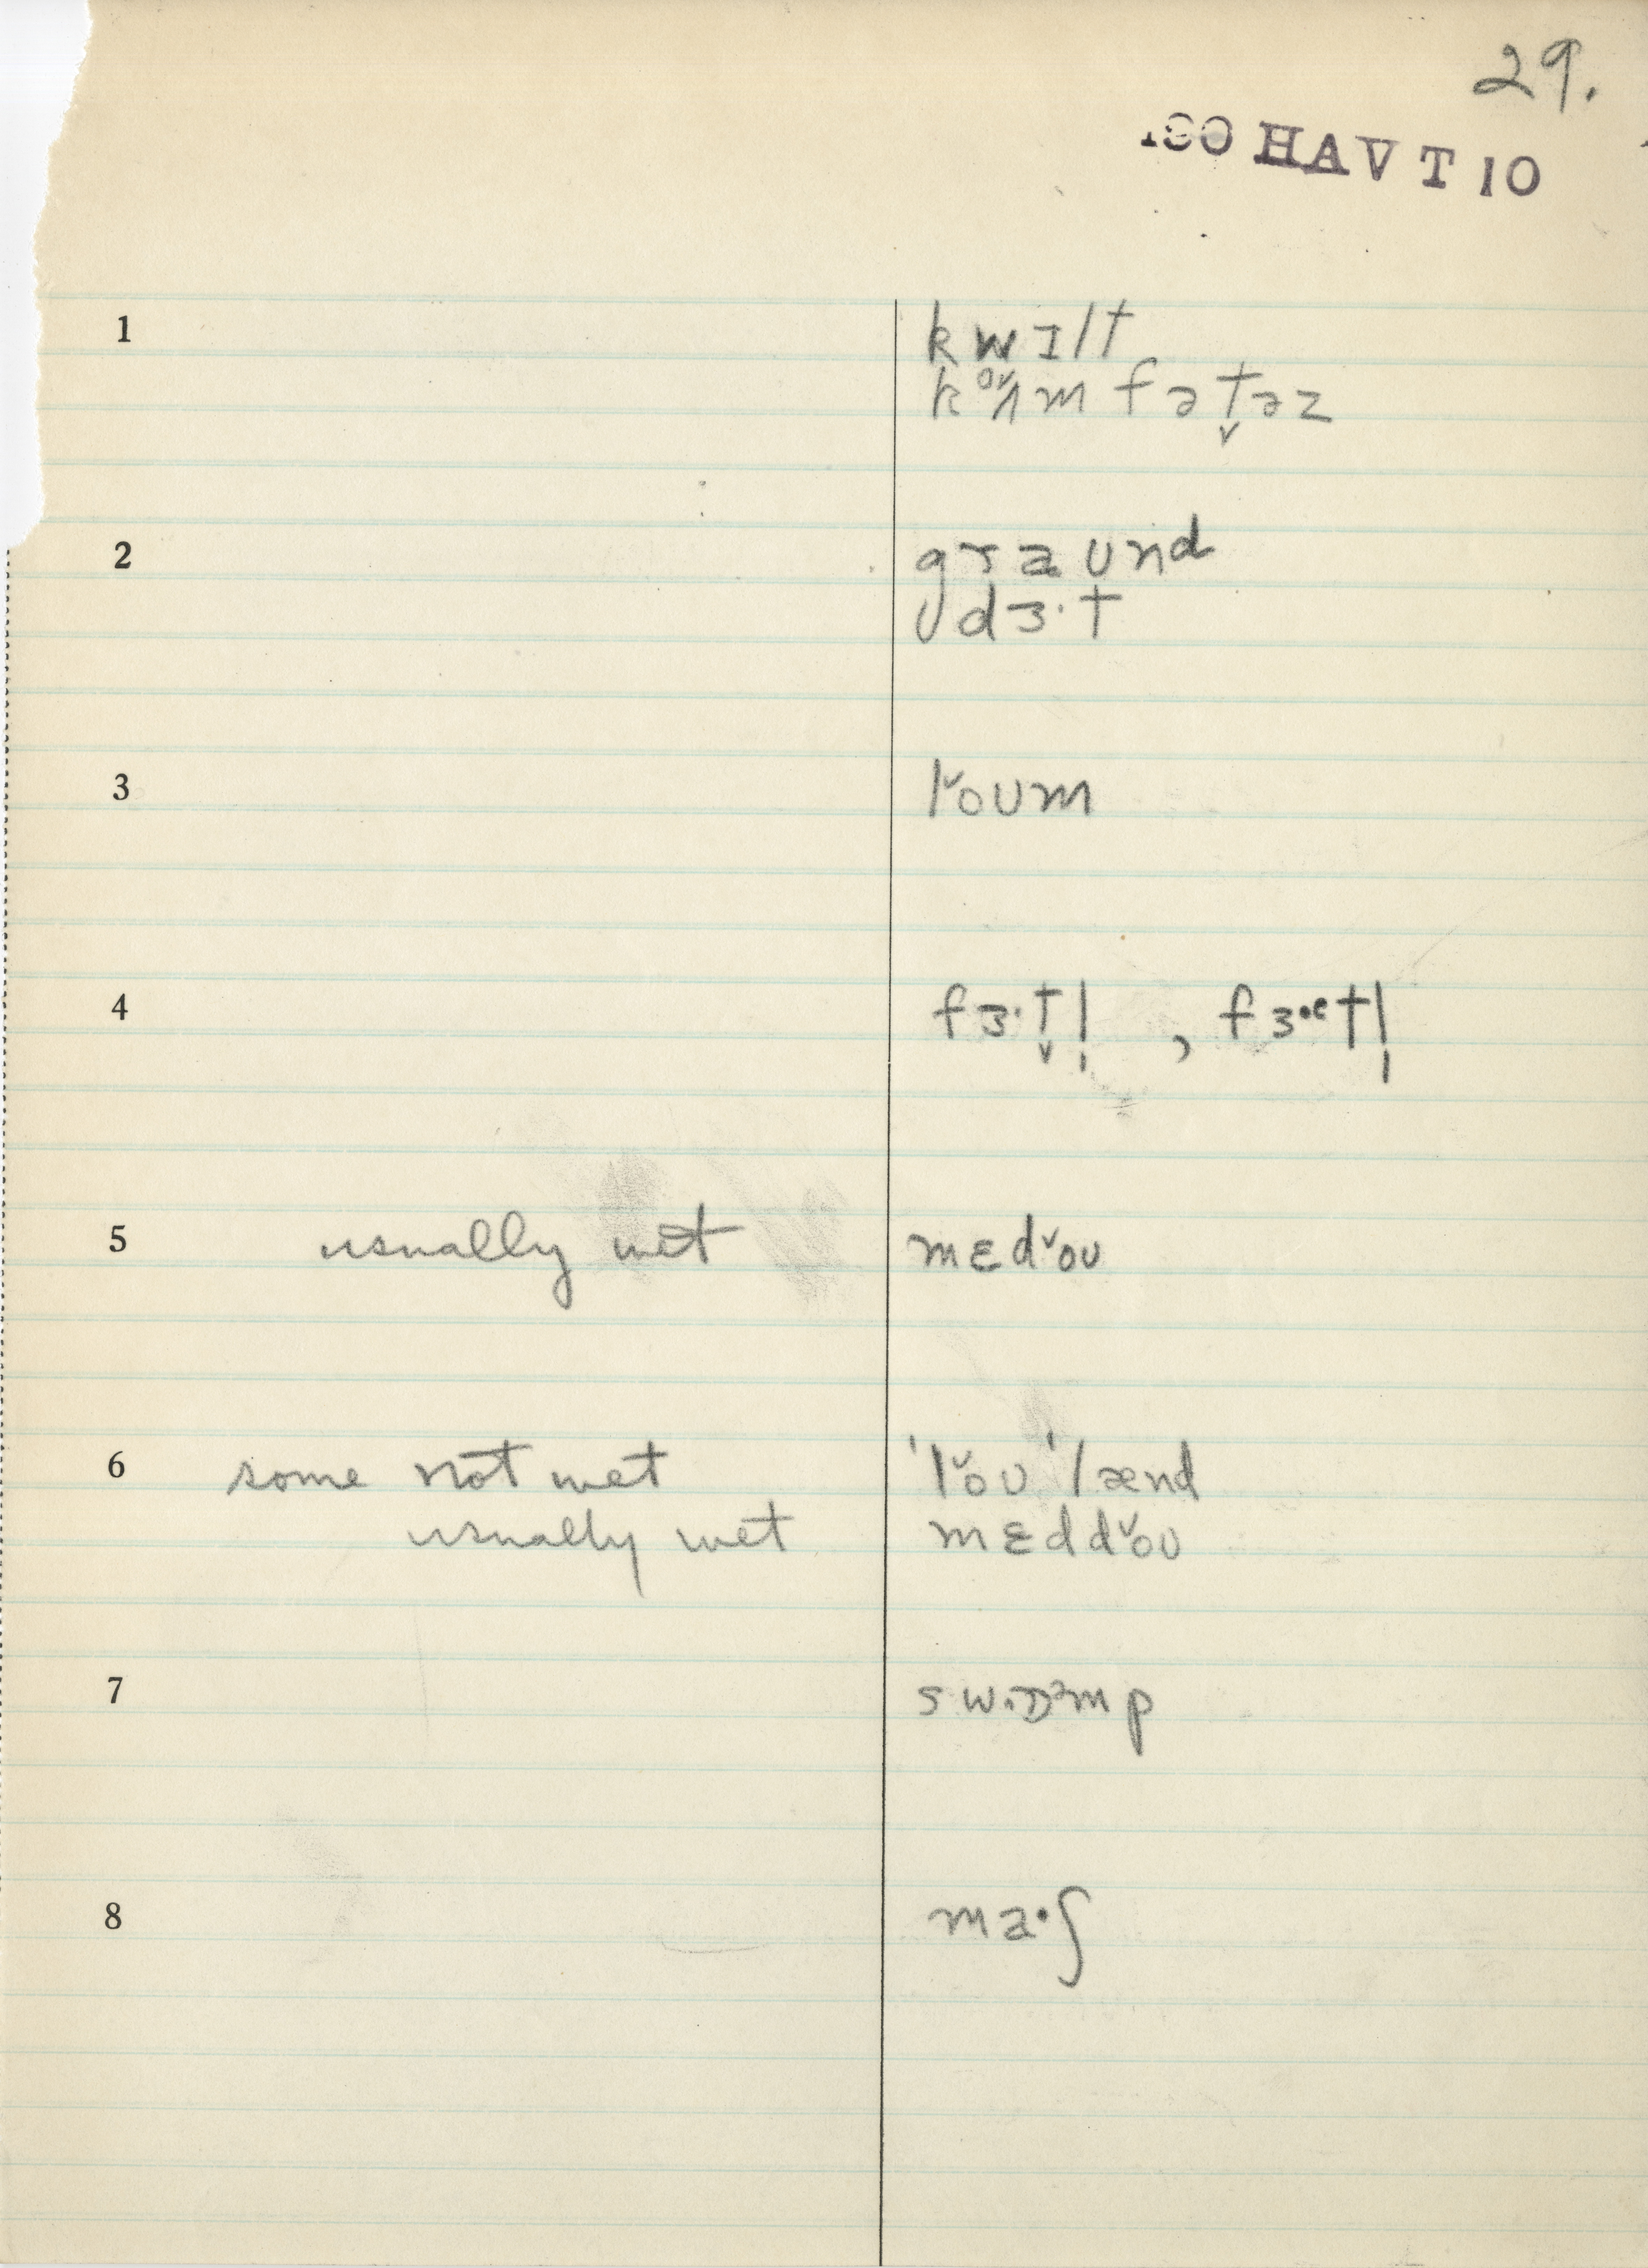 29.
190 HAV T 10
1 kwɪlt
kʌm fət̬əz
2 graund
dɜ·t
3 l˅oʊm
4 fɜ·t̬l̩ , fɜ·ətl̩
5 usually wet mɛd˅oʊ
6 some not wet 'l˅oʊ 'lænd
usually wet mɛdd˅oʊ
7 sw·ɒᵊmp
8 ma·ʃ